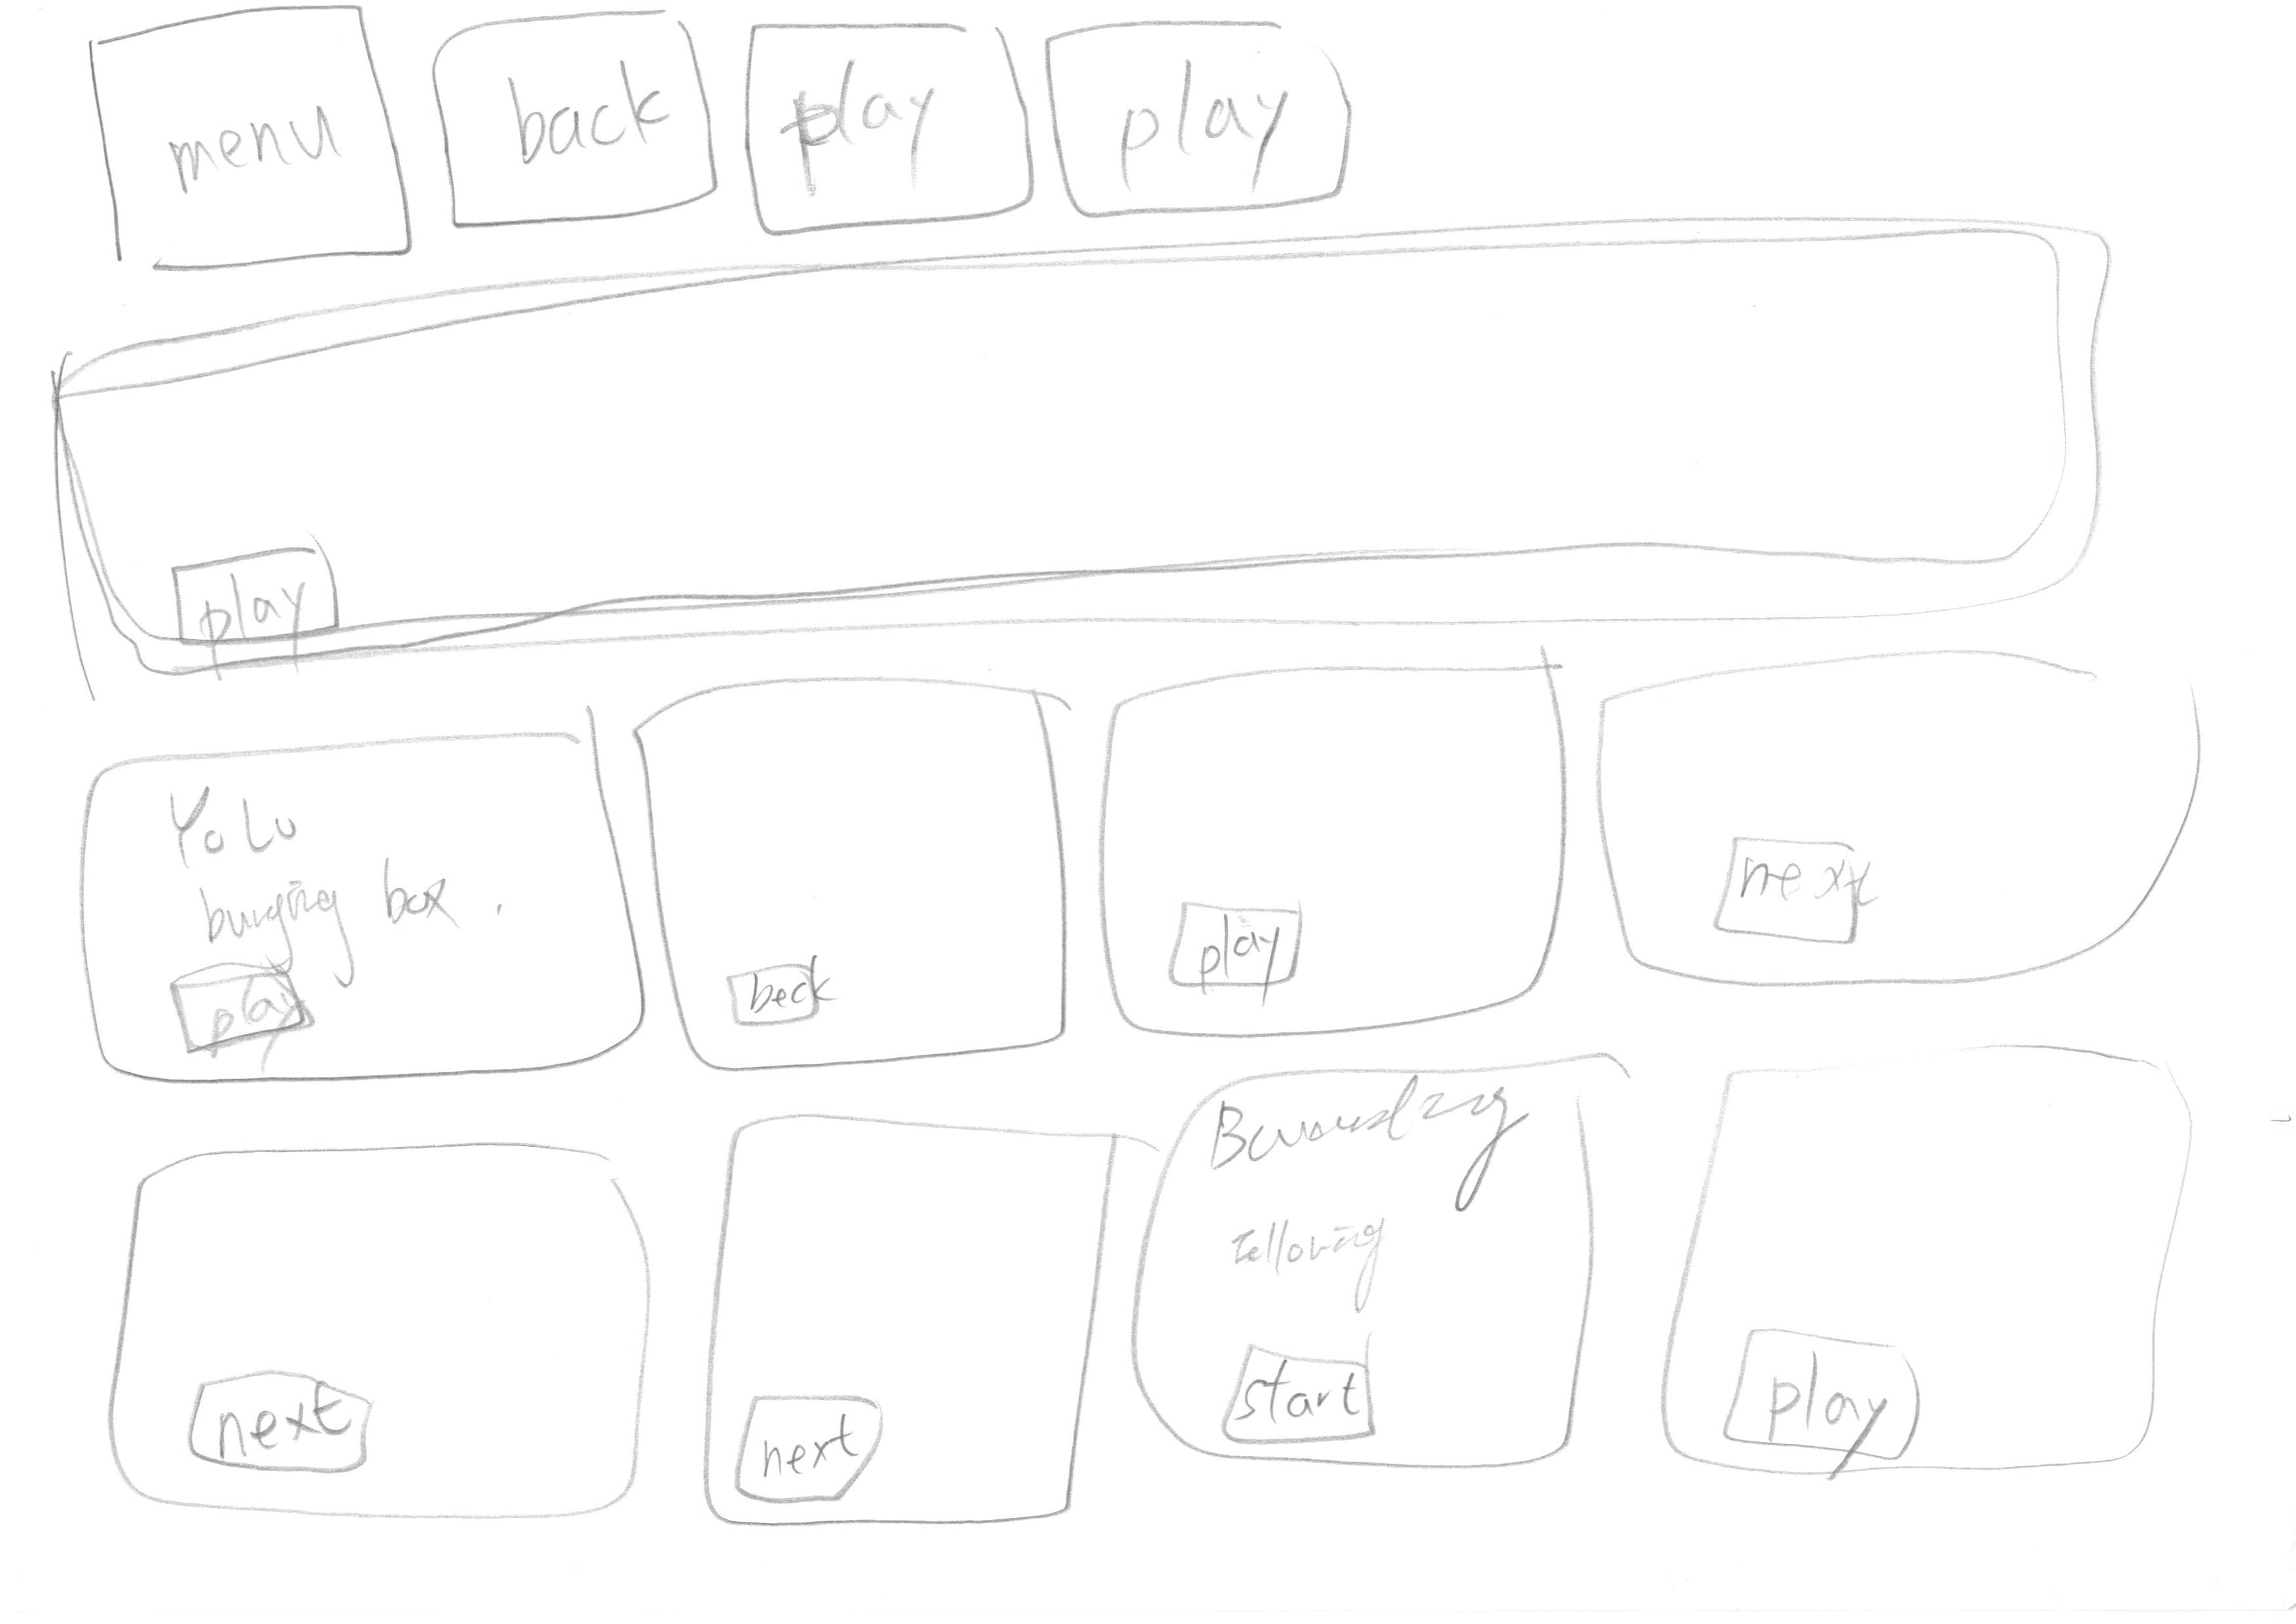 menu back play play
play
YoLo
box.
play
beck
play
next
next
next
Bounding
start
play